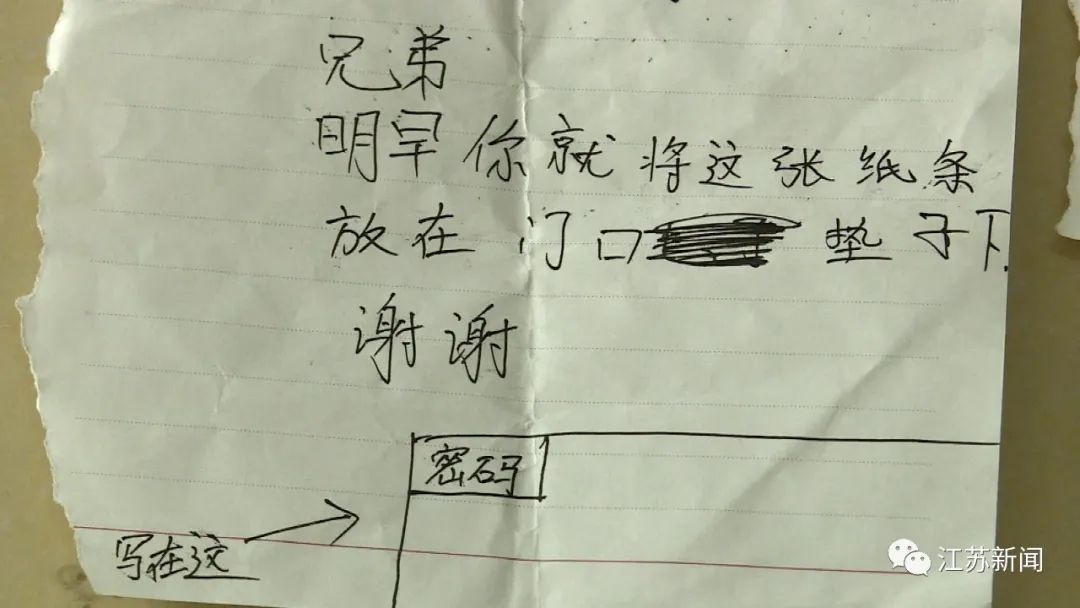 兄弟
明早你就将这张纸条
放在门口垫子下
谢谢
密码
写在这
江苏新闻